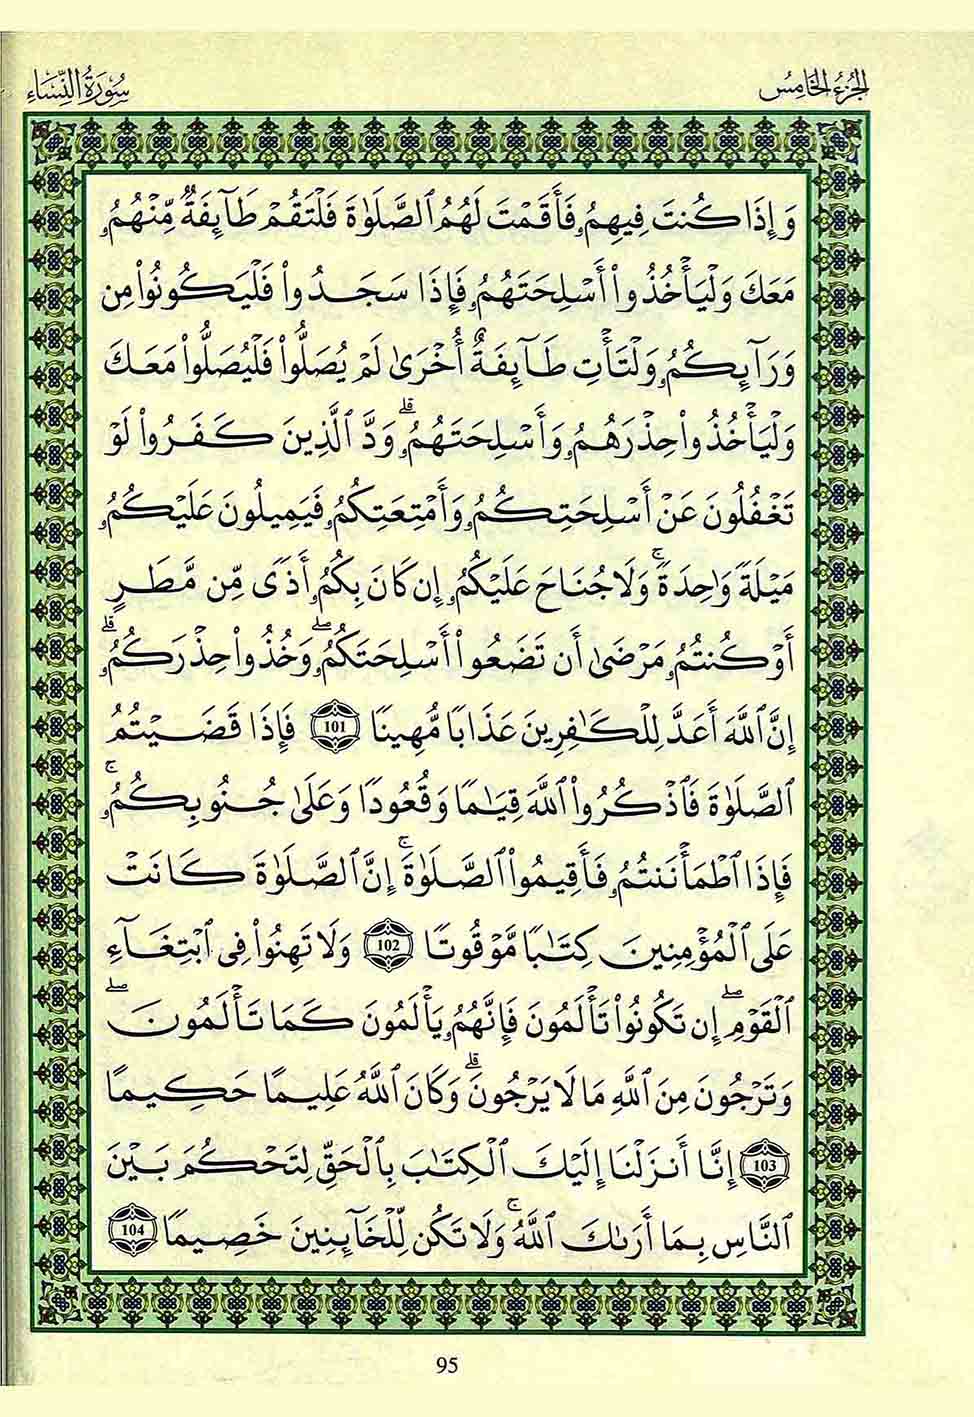 الجزء الخامس
سورة النساء
وَإِذَا كُنتَ فِيهِمُۥ فَأَقَمْتَ لَهُمُ ٱلصَّلَوٰةَ فَلْتَقُمْ طَآئِفَةٌ مِّنْهُمُۥ
مَعَكَ وَلْيَأْخُذُوٓا۟ أَسْلِحَتَهُمُۥ فَإِذَا سَجَدُوا۟ فَلْيَكُونُوا۟ مِن
وَرَآئِكُمُۥ وَلْتَأْتِ طَآئِفَةٌ أُخْرَىٰ لَمْ يُصَلُّوا۟ فَلْيُصَلُّوا۟ مَعَكَ
وَلْيَأْخُذُوا۟ حِذْرَهُمُۥ وَأَسْلِحَتَهُمُۥ ۗ وَدَّ ٱلَّذِينَ كَفَرُوا۟ لَوْ
تَغْفُلُونَ عَنْ أَسْلِحَتِكُمُۥ وَأَمْتِعَتِكُمُۥ فَيَمِيلُونَ عَلَيْكُمُۥ
مَيْلَةً وَٰحِدَةً ۚ وَلَا جُنَاحَ عَلَيْكُمُۥ إِن كَانَ بِكُمُۥ أَذًى مِّن مَّطَرٍ
أَوْ كُنتُمُۥ مَرْضَىٰ أَن تَضَعُوٓا۟ أَسْلِحَتَكُمُۥ ۖ وَخُذُوا۟ حِذْرَكُمُۥ ۗ
إِنَّ ٱللَّهَ أَعَدَّ لِلْكَٰفِرِينَ عَذَابًا مُّهِينًا 101 فَإِذَا قَضَيْتُمُ
ٱلصَّلَوٰةَ فَٱذْكُرُوا۟ ٱللَّهَ قِيَٰمًا وَقُعُودًا وَعَلَىٰ جُنُوبِكُمُۥ ۚ
فَإِذَا ٱطْمَأْنَنتُمُۥ فَأَقِيمُوا۟ ٱلصَّلَوٰةَ ۚ إِنَّ ٱلصَّلَوٰةَ كَانَتْ
عَلَى ٱلْمُؤْمِنِينَ كِتَٰبًا مَّوْقُوتًا 102 وَلَا تَهِنُوا۟ فِى ٱبْتِغَآءِ
ٱلْقَوْمِ ۖ إِن تَكُونُوا۟ تَأْلَمُونَ فَإِنَّهُمُۥ يَأْلَمُونَ كَمَا تَأْلَمُونَ ۖ
وَتَرْجُونَ مِنَ ٱللَّهِ مَا لَا يَرْجُونَ ۗ وَكَانَ ٱللَّهُ عَلِيمًا حَكِيمًا
103 إِنَّا أَنزَلْنَا إِلَيْكَ ٱلْكِتَٰبَ بِٱلْحَقِّ لِتَحْكُمَ بَيْنَ
ٱلنَّاسِ بِمَا أَرَىٰكَ ٱللَّهُ ۚ وَلَا تَكُن لِّلْخَآئِنِينَ خَصِيمًا 104
95